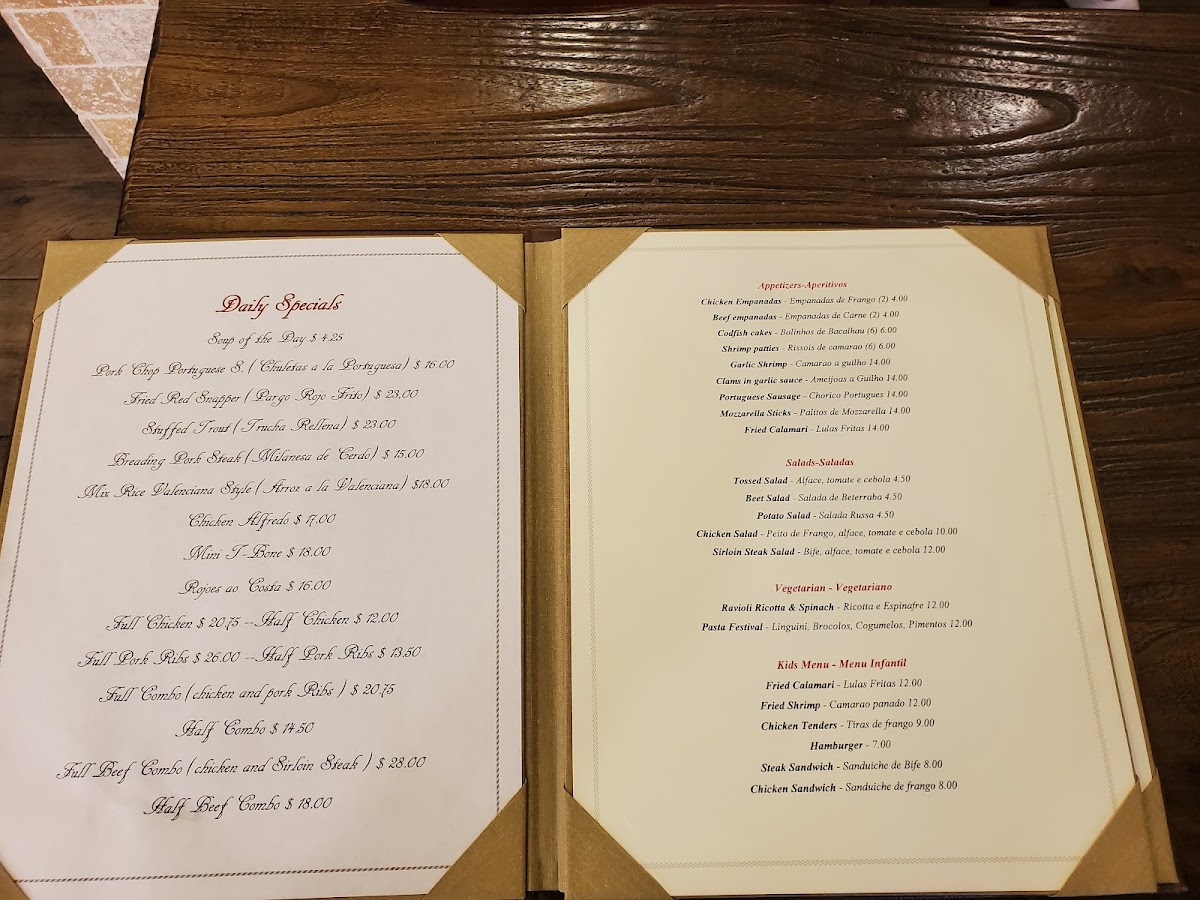 Daily Specials
Soup of the Day $ 4.25
Pork Chop Portuguese S. ( Chuletas a la Portuguesa) $ 16.00
Fried Red Snapper ( Pargo Rojo Frito) $ 23.00
Stuffed Trout ( Trucha Rellena) $ 23.00
Breading Pork Steak ( Milanesa de Cerdo) $ 15.00
Mix Rice Valenciana Style ( Arroz a la Valenciana) $18.00
Chicken Alfredo $ 17.00
Mini T-Bone $ 18.00
Rojoes ao Costa $ 16.00
Full Chicken $ 20.75 --Half Chicken $ 12.00
Full Pork Ribs $ 26.00 --Half Pork Ribs $ 13.50
Full Combo ( chicken and pork Ribs ) $ 20.75
Half Combo $ 14.50
Full Beef Combo ( chicken and Sirloin Steak ) $ 28.00
Half Beef Combo $ 18.00
Appetizers-Aperitivos
Chicken Empanadas - Empanadas de Frango (2) 4.00
Beef empanadas - Empanadas de Carne (2) 4.00
Codfish cakes - Bolinhos de Bacalhau (6) 6.00
Shrimp patties - Rissois de camarao (6) 6.00
Garlic Shrimp - Camarao a guilho 14.00
Clams in garlic sauce - Ameijoas a Guilho 14.00
Portuguese Sausage - Chorico Portugues 14.00
Mozzarella Sticks - Palitos de Mozzarella 14.00
Fried Calamari - Lulas Fritas 14.00
Salads-Saladas
Tossed Salad - Alface, tomate e cebola 4.50
Beet Salad - Salada de Beterraba 4.50
Potato Salad - Salada Russa 4.50
Chicken Salad - Peito de Frango, alface, tomate e cebola 10.00
Sirloin Steak Salad - Bife, alface, tomate e cebola 12.00
Vegetarian - Vegetariano
Ravioli Ricotta & Spinach - Ricotta e Espinafre 12.00
Pasta Festival - Linguini, Brocolos, Cogumelos, Pimentos 12.00
Kids Menu - Menu Infantil
Fried Calamari - Lulas Fritas 12.00
Fried Shrimp - Camarao panado 12.00
Chicken Tenders - Tiras de frango 9.00
Hamburger - 7.00
Steak Sandwich - Sanduiche de Bife 8.00
Chicken Sandwich - Sanduiche de frango 8.00